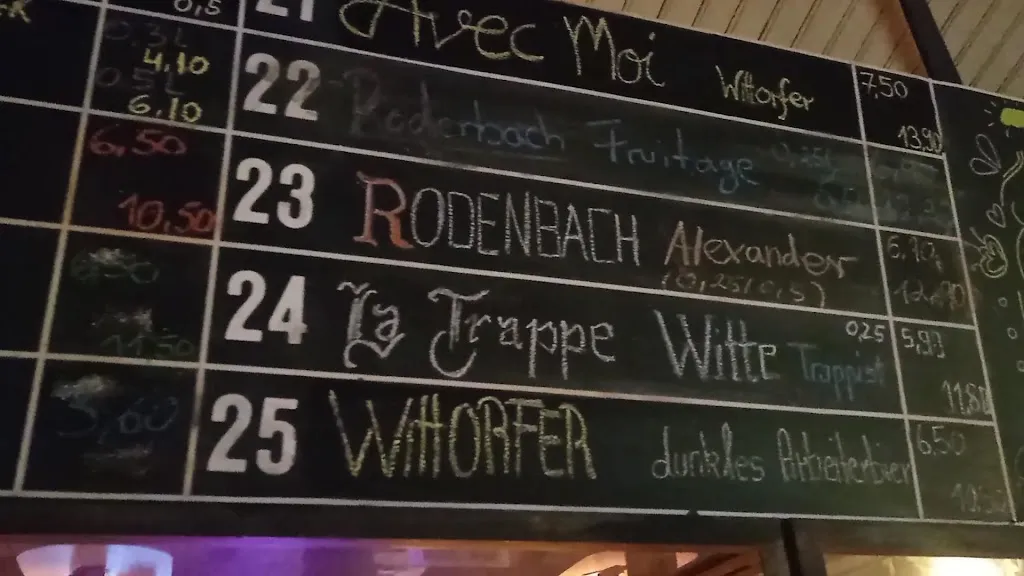 0,5
0,3L
4,10
0,5L
6,10
6,50
10,50
11,50
21 Avec Moi Wittorfer 7,50
13,90
22 Rodenbach Fruitage 0,25l
23 RODENBACH Alexander 6,90
(0,25/0,5)
24 La Trappe Witte Trappist 0,25 5,90
11,80
25 WITTORFER dunkles 6,50